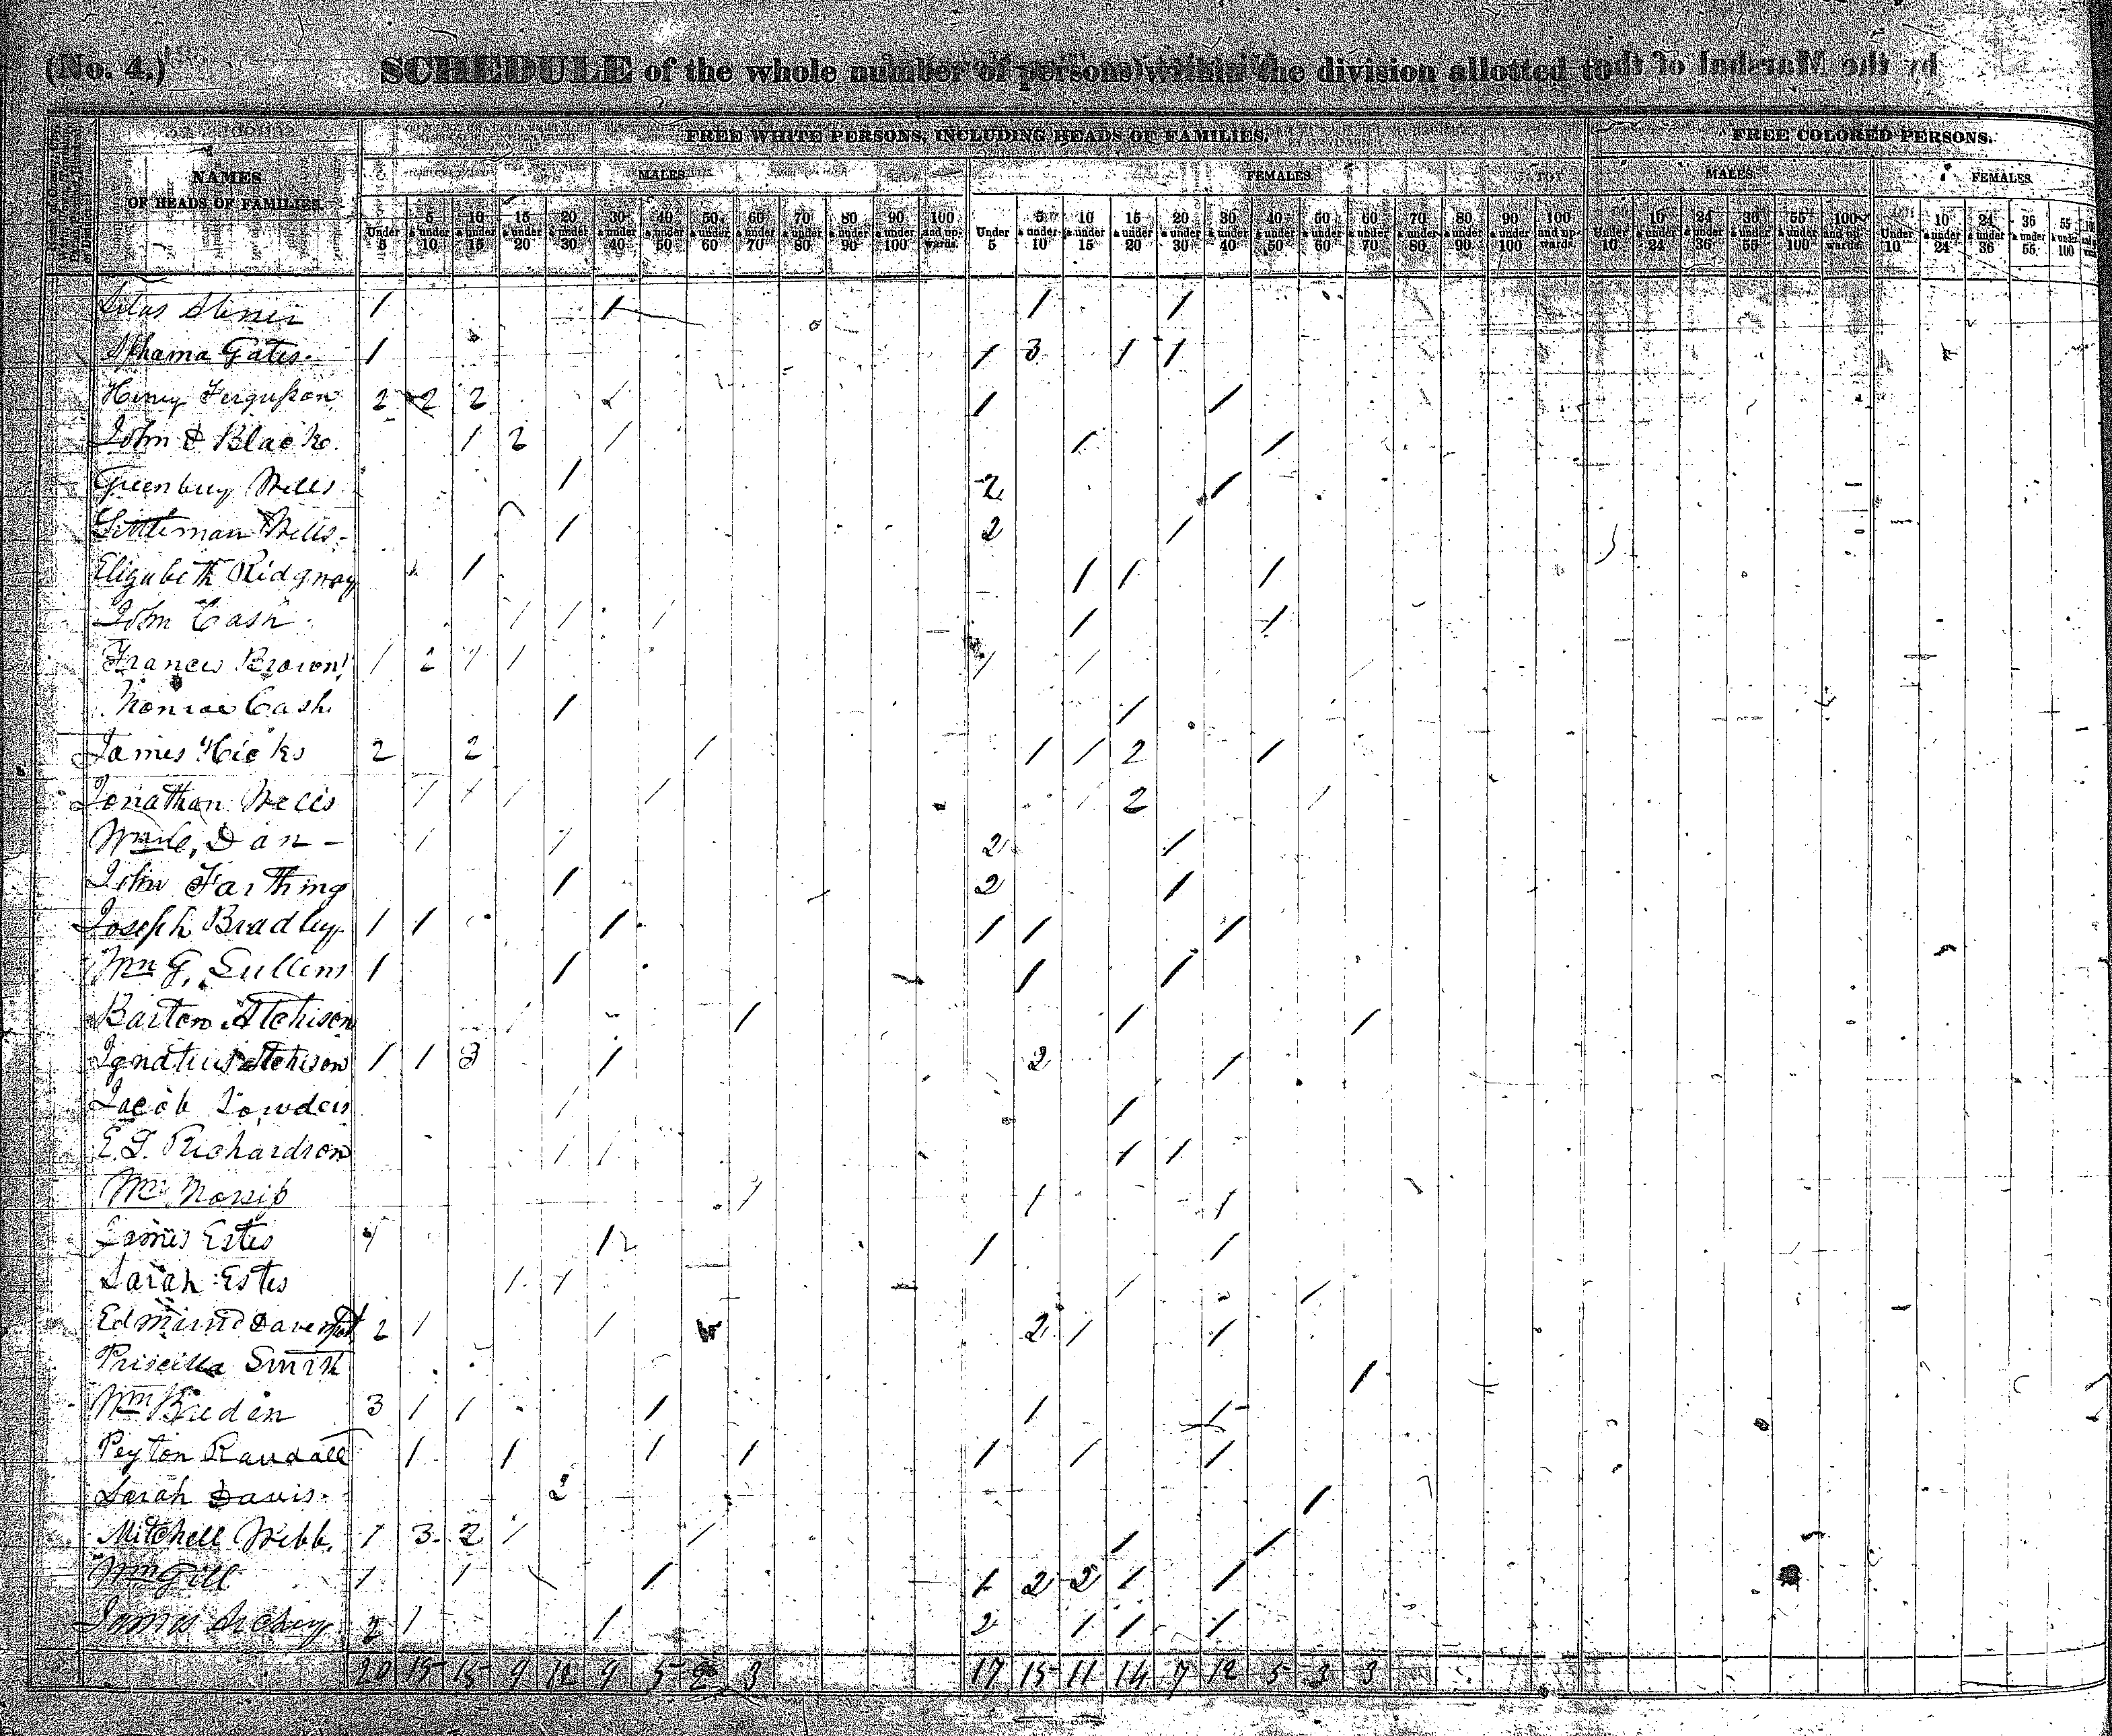 (No. 4.) SCHEDULE of the whole number of persons within the division allotted to by the Marshal of the
FREE WHITE PERSONS, INCLUDING HEADS OF FAMILIES. FREE COLORED PERSONS.
NAMES OF HEADS OF FAMILIES. MALES. FEMALES. MALES. FEMALES.
Under 5 5 & under 10 10 & under 15 15 & under 20 20 & under 30 30 & under 40 40 & under 50 50 & under 60 60 & under 70 70 & under 80 80 & under 90 90 & under 100 100 and upwards. Under 5 5 & under 10 10 & under 15 15 & under 20 20 & under 30 30 & under 40 40 & under 50 50 & under 60 60 & under 70 70 & under 80 80 & under 90 90 & under 100 100 and upwards. Under 10 10 & under 24 24 & under 36 36 & under 55 55 & under 100 100 and upwards. Under 10 10 & under 24 24 & under 36 36 & under 55 55 & under 100
1 1 1 1
Gates 1 1 3 1 1
Henry Ferguson 2 2 2 1 1 1
John & Black 1 2 1 1 1
Greenbury Wells 1 2 1
Littleman Wells 1 2 1
Elizabeth Ridgway 1 1 1 1
John Cash 1 1 1 1 1
Francis Brown 1 2 1 1 1 1
Monroe Cash 1 1
James Hicks 2 2 1 1 1 2 1
Jonathan Wells 1 1 1 1 1 2 1
Wm C. Dan 1 1 2 1
John Farthing 1 2 1
Joseph Bradley 1 1 1 1 1 1
Wm G. Sullens 1 1 1 1
Barton Atchison 1 1 1 1
Ignatius Atchison 1 1 3 1 2 1
Jacob Lowders 1 1
E. T. Richardson 1 1 1 1
Wm 1 1 1
James Estes 1 1 1
Sarah Estes 1 1 1 1
Edmund Davenport 2 1 1 2 1 1
Priscilla Smith 1
Wm Breden 3 1 1 1 1 1
Peyton Randall 1 1 1 1 1 1 1
Sarah Davis 2 1
Mitchell Webb 1 3 2 1 1 1 1
Wm Gill 1 1 1 1 1 2 2 1 1
James Archey 2 1 1 2 1 1 1
20 15 15 9 12 9 5 2 3 17 15 11 14 7 12 5 3 3